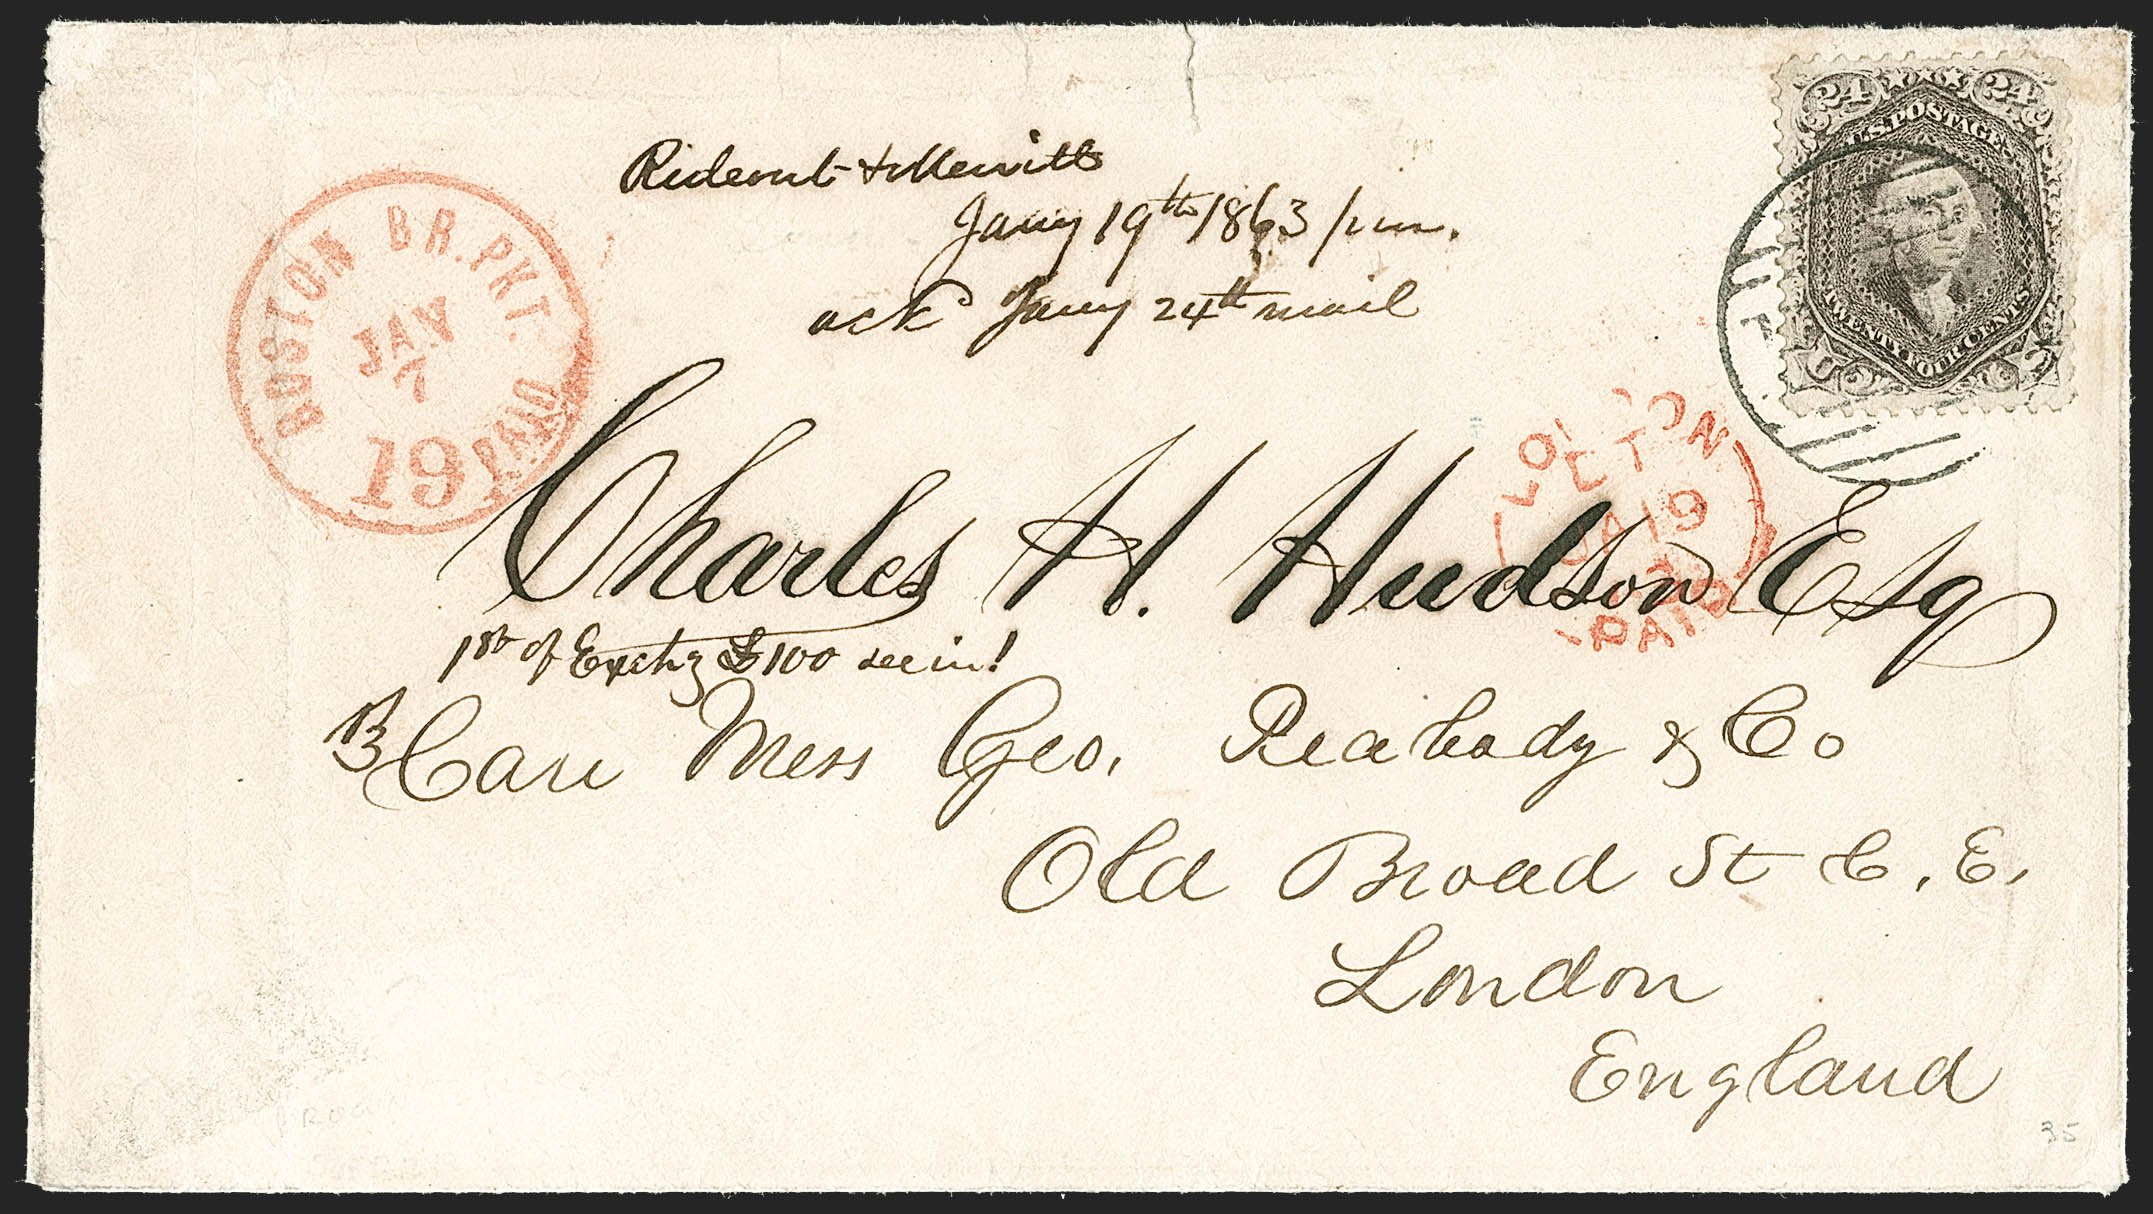 24 24
U.S. POSTAGE
TWENTY FOUR CENTS
U S
Rideout & Merritt
Jany 19th 1863 / p.m.
ack Jany 24th mail
BOSTON BR. PKT.
JAN
7
19 PAID
LONDON
ET
JA 19
PAID
Charles H. Hudson Esq
1st of Exchg £100 see in!
Care Mess Geo. Peabody & Co
Old Broad St E. E.
London
England
35